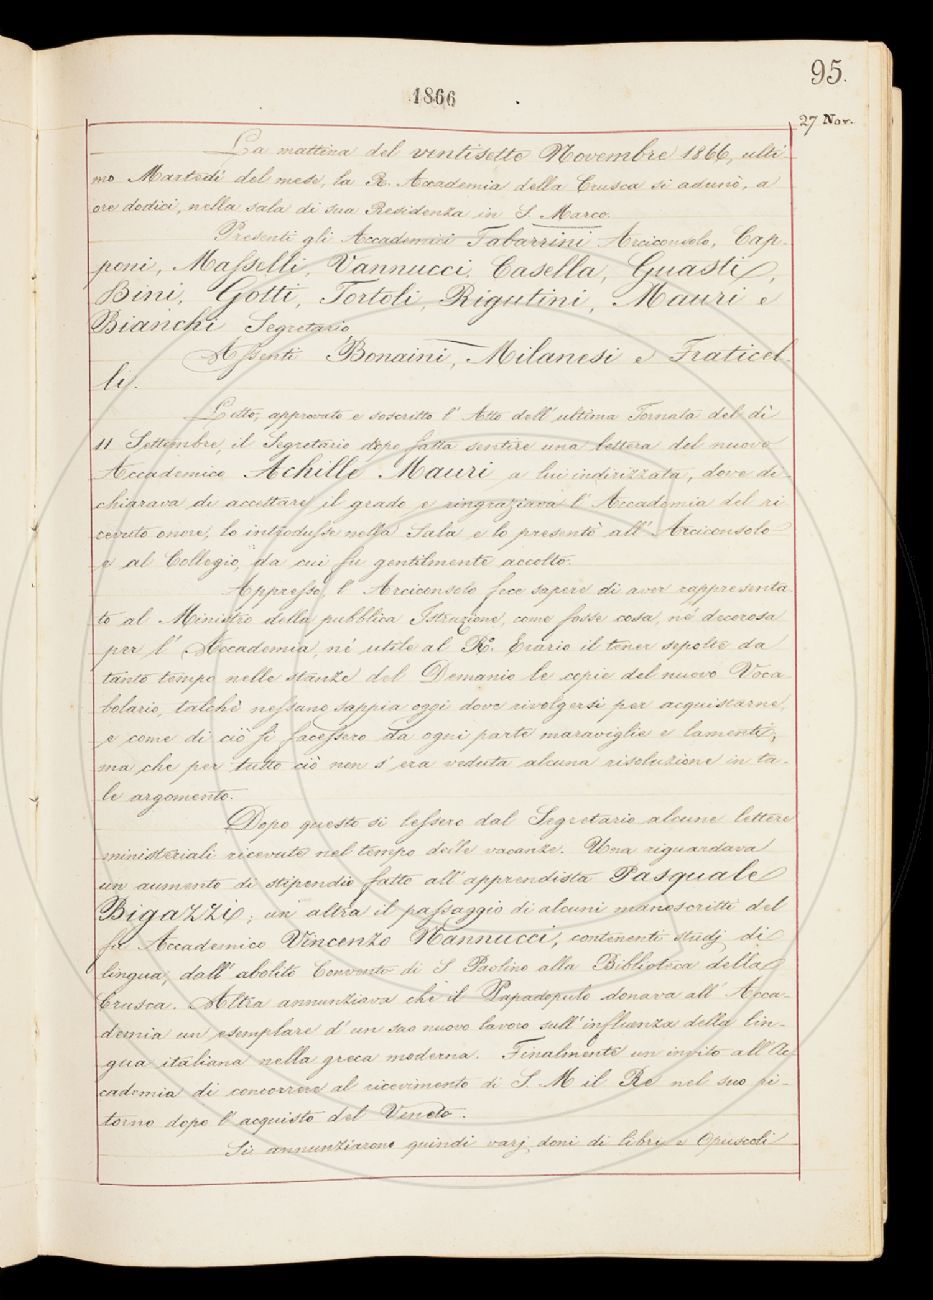 95.
1866
27 Nov.
La mattina del ventisette Novembre 1866, ulti-
mo Martedì del mese, la R. Accademia della Crusca si adunò, a
ore dodici, nella sala di sua Residenza in S. Marco.
Presenti gli Accademici Tabarrini Arciconsolo, Cap-
poni, Masselli, Vannucci, Casella, Guasti,
Bini, Gotti, Tortoli, Rigutini, Mauri e
Bianchi Segretario
Assenti Bonaini, Milanesi e Fraticel-
li.
Letto, approvato e soscritto l' Atto dell' ultima Tornata del dì
11 Settembre, il Segretario dopo fatta sentire una lettera del nuovo
Accademico Achille Mauri a lui indirizzata, dove di-
chiarava di accettare il grado e ringraziava l' Accademia del ri-
cevuto onore, lo introdusse nella Sala e lo presentò all' Arciconsolo
e al Collegio, da cui fu gentilmente accolto.
Appresso, l' Arciconsolo fece sapere di aver rappresenta-
to al Ministro della pubblica Istruzione, come fosse cosa, nè decorosa
per l' Accademia, nè utile al R.o Erario il tener sepolte da
tanto tempo nelle stanze del Demanio le copie del nuovo Voca-
bolario, talchè nessuno sappia oggi dove rivolgersi per acquistarne,
e come di ciò si facessero da ogni parte maraviglie e lamenti;
ma che per tutto ciò non s' era veduta alcuna risoluzione in ta-
le argomento.
Dopo questo si lessero dal Segretario alcune lettere
ministeriali ricevute nel tempo delle vacanze. Una riguardava
un aumento di stipendio fatto all' apprendista Pasquale
Bigazzi; un' altra il passaggio di alcuni manoscritti del
fu Accademico Vincenzo Nannucci, contenenti studj di
lingua, dall' abolito Convento di S. Paolino alla Biblioteca della
Crusca. Altra annunziava che il Papadopulo donava all' Acca-
demia un esemplare d' un suo nuovo lavoro sull' influenza della lin-
gua italiana nella greca moderna. Finalmente un invito all' Ac-
cademia di concorrere al ricevimento di S. M. il Re nel suo ri-
torno dopo l' acquisto del Veneto.
Si annunziarono quindi varj doni di libri e Opuscoli